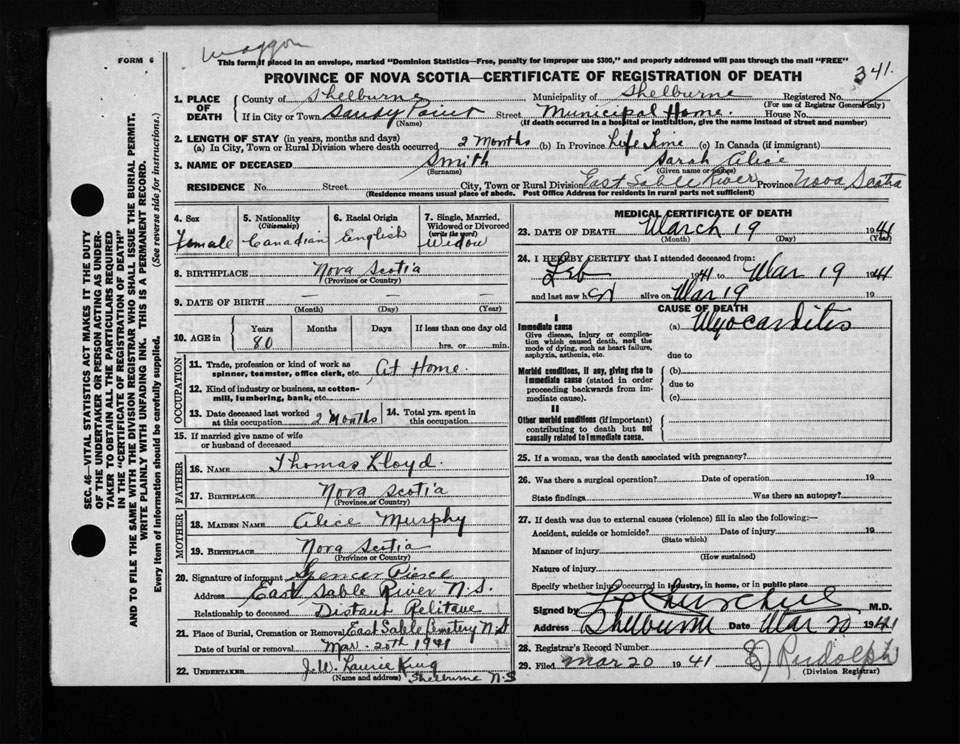 waggon
FORM 6
This form if placed in an envelope, marked "Dominion Statistics—Free, penalty for improper use $300," and properly addressed will pass through the mail "FREE"
PROVINCE OF NOVA SCOTIA—CERTIFICATE OF REGISTRATION OF DEATH
341.
1. PLACE OF DEATH
County of Shelburne Municipality of Shelburne Registered No.
(For use of Registrar General only)
If in City or Town Sandy Point Street Municipal Home. House No.
(Name) (If death occurred in a hospital or institution, give the name instead of street and number)
2. LENGTH OF STAY (in years, months and days)
(a) In City, Town or Rural Division where death occurred 2 Months (b) In Province Life Time (c) In Canada (if immigrant)
3. NAME OF DECEASED Smith Sarah Alice
(Surname) (Given name or names)
RESIDENCE No. Street City, Town or Rural Division East Sable River Province Nova Scotia
(Residence means usual place of abode. Post Office Address for residents in rural parts not sufficient)
4. Sex Female
5. Nationality (Citizenship) Canadian
6. Racial Origin English
7. Single, Married, Widowed or Divorced (write the word) Widow
8. BIRTHPLACE Nova Scotia
(Province or Country)
9. DATE OF BIRTH — — —
(Month) (Day) (Year)
10. AGE in Years Months Days If less than one day old
80 hrs. or min.
OCCUPATION
11. Trade, profession or kind of work as spinner, teamster, office clerk, etc. At Home.
12. Kind of industry or business, as cotton-mill, lumbering, bank, etc.
13. Date deceased last worked at this occupation 2 Months
14. Total yrs. spent in this occupation
15. If married give name of wife or husband of deceased
FATHER
16. NAME Thomas Lloyd.
17. BIRTHPLACE Nova Scotia
(Province or Country)
MOTHER
18. MAIDEN NAME Alice Murphy
19. BIRTHPLACE Nova Scotia
(Province or Country)
20. Signature of informant Spencer Pierce
Address East Sable River N.S.
Relationship to deceased Distant Relitave
21. Place of Burial, Cremation or Removal East Sable Cemetery N.S
Date of burial or removal Mar 20th 1941
22. UNDERTAKER J.W. Laurie King
(Name and address) Shelburne N.S
MEDICAL CERTIFICATE OF DEATH
23. DATE OF DEATH March 19 1941
(Month) (Day) (Year)
24. I HEREBY CERTIFY that I attended deceased from:
Feb 1941 to Mar 19 1941
and last saw her alive on Mar 19 19
CAUSE OF DEATH
I
Immediate cause
Give disease, injury or complication which caused death, not the mode of dying, such as heart failure, asphyxia, asthenia, etc.
(a) Myocarditis
due to
Morbid conditions, if any, giving rise to immediate cause (stated in order proceeding backwards from immediate cause).
(b)
due to
(c)
II
Other morbid conditions (if important) contributing to death but not causally related to immediate cause.
25. If a woman, was the death associated with pregnancy?
26. Was there a surgical operation? Date of operation 19
State findings Was there an autopsy?
27. If death was due to external causes (violence) fill in also the following:—
Accident, suicide or homicide? Date of injury 19
(State which)
Manner of injury
(How sustained)
Nature of injury
Specify whether injury occurred in industry, in home, or in public place
Signed by Churchill M.D.
Address Shelburne Date Mar 20 1941
28. Registrar's Record Number
29. Filed Mar 20 1941 Rudolph
(Division Registrar)
SEC. 46—VITAL STATISTICS ACT MAKES IT THE DUTY
OF THE UNDERTAKER OR PERSON ACTING AS UNDER-
TAKER TO OBTAIN ALL THE PARTICULARS REQUIRED
IN THE "CERTIFICATE OF REGISTRATION OF DEATH"
AND TO FILE THE SAME WITH THE DIVISION REGISTRAR WHO SHALL ISSUE THE BURIAL PERMIT.
WRITE PLAINLY WITH UNFADING INK. THIS IS A PERMANENT RECORD.
Every item of Information should be carefully supplied. (See reverse side for instructions.)